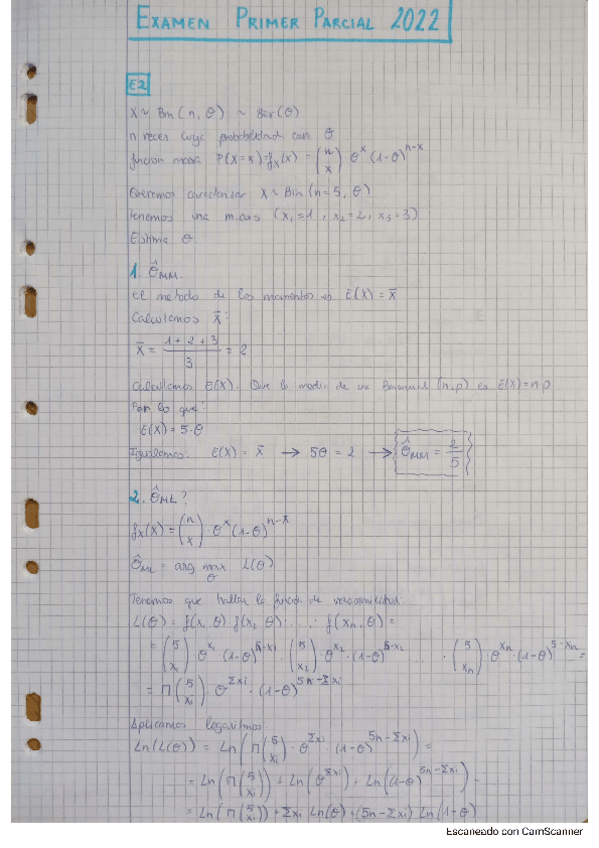 EXAMEN PRIMER PARCIAL 2022
E2
X ~ Bin(n, θ) ~ Ber(θ)
n veces cuya probabilidad con θ
función masa P(X=x)=f_X(x) = (n x) · θ^x (1-θ)^{n-x}
Queremos caracterizar X ~ Bin(n=5, θ)
tenemos una m.a.s (x₁=1, x₂=2, x₃=3)
Estima θ.
1. θ̂_MM.
el método de los momentos es E(X) = x̄
Calculamos x̄:
x̄ = (1+2+3)/3 = 2
Calculamos E(X). Que la media de una Binomial (n,p) es E(X)=n·p
Por lo que:
E(X) = 5·θ
Igualamos: E(X) = x̄ → 5θ = 2 → θ̂_MM = 2/5
2. θ̂_ML?
f_X(X) = (n x) · θ^x (1-θ)^{n-x}
θ̂_ML = arg max_θ L(θ)
Tenemos que hallar la función de verosimilitud
L(θ) = f(x, θ) f(x, θ) · ... · f(x_n, θ) =
= (5 x) θ^{x₁} (1-θ)^{5-x₁} · (5 x₂) θ^{x₂} · (1-θ)^{5-x₂} ... · (5 x_n) · θ^{x_n} · (1-θ)^{5-x_n} =
= Π(5 x_i) · θ^{Σx_i} · (1-θ)^{5n-Σx_i}
Aplicamos logaritmos
Ln(L(θ)) = Ln(Π(5 x_i) · θ^{Σx_i} · (1-θ)^{5n-Σx_i}) =
= Ln(Π(5 x_i)) + Ln(θ^{Σx_i}) + Ln((1-θ)^{5n-Σx_i}) =
= Ln(Π(5 x_i)) + Σx_i Ln(θ) + (5n-Σx_i) Ln(1-θ)
Escaneado con CamScanner